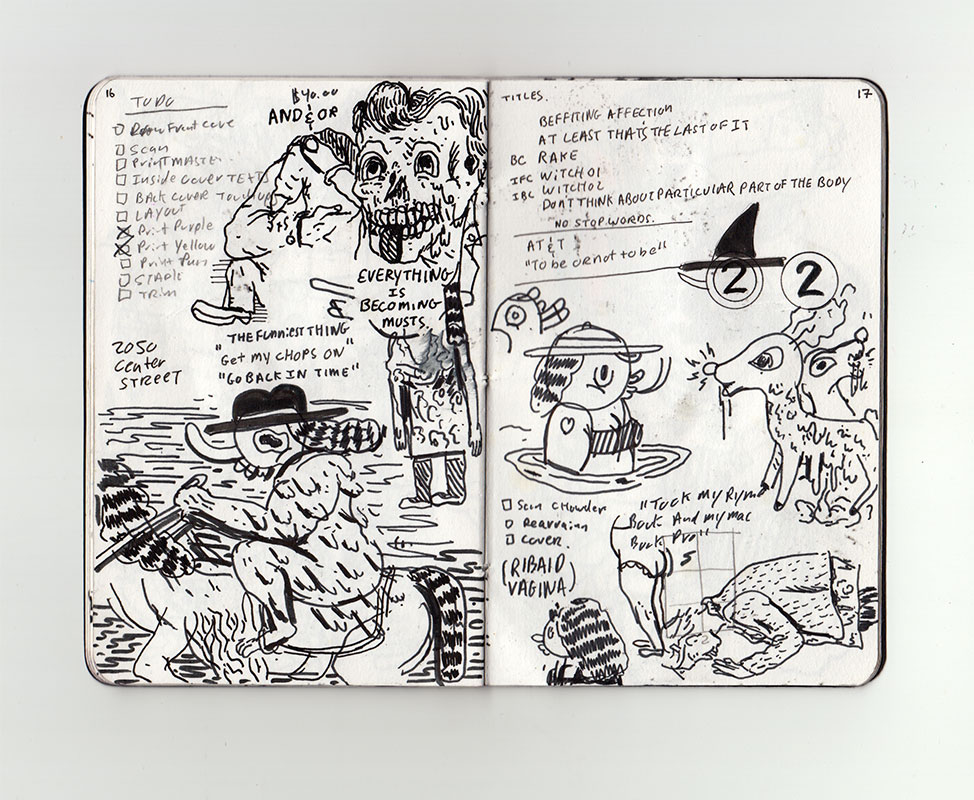 16
TODO
Draw Front Cove
Scan
Print MASTE
Inside Cover TEXT
BACK COVER Touchup
LAYOUT
Print Purple
Print Yellow
Print
STAPLE
TRIM
$40.00
AND & OR
EVERYTHING
IS
BECOMING
MUSTS
2050
Center
STREET
"THE FUNNIEST THING
Get MY CHOPS ON"
"GO BACK IN TIME"
17
TITLES.
BEFFITING AFFECTION
AT LEAST THAT'S THE LAST OF IT
BC RAKE
IFC WITCH 01
IBC WITCH 02
DON'T THINK ABOUT PARTICULAR PART OF THE BODY
NO STOP WORDS.
AT&T
"To be or not to be"
2 2
Scan CHOWDER
COVER.
(RIBALD
VAGINA)
"Tuck my Ryme
Back And my mac
Back Pro"
5